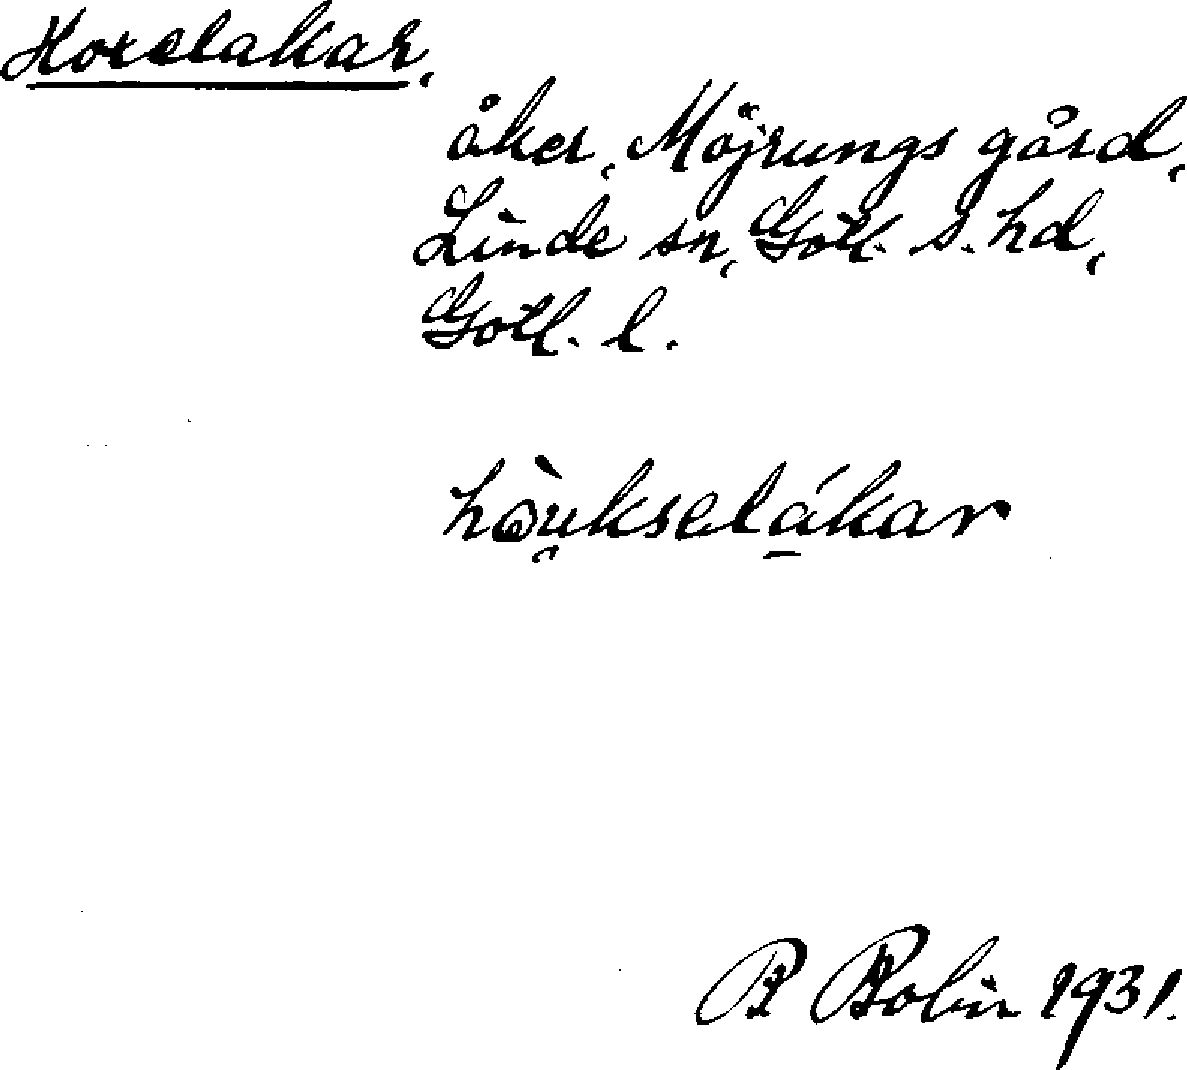 Hoxelakar,
åker, Möjrungs gård,
Linde sn, Gotl. s. hd,
Gotl. l.
hòu̯kselákar
R Bolin 1931.